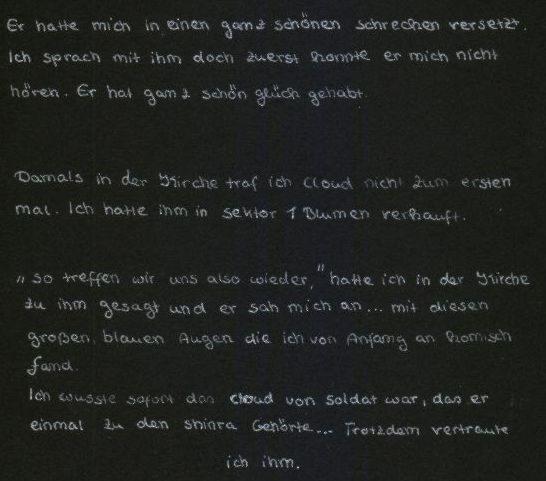 Er hatte mich in einen ganz schönen schrecken versetzt.
Ich sprach mit ihm doch zuerst konnte er mich nicht
hören. Er hat ganz schön glück gehabt.
Damals in der Kirche traf ich Cloud nicht zum ersten
mal. Ich hatte ihm in sektor 1 Blumen verkauft.
„so treffen wir uns also wieder," hatte ich in der Kirche
zu ihm gesagt und er sah mich an... mit diesen
großen, blauen Augen die ich von Anfang an komisch
fand.
Ich wusste sofort das cloud von soldat war, das er
einmal zu den shinra Gehörte... Trotzdem vertraute
ich ihm.